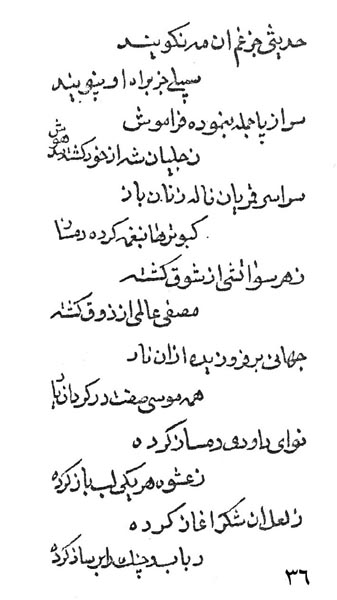 حدیثی جز غم ان مه نکویند
سبیلی جز براه او پنویند
سر از پا جمله بنموده فراموش
سراسر قریان ناله زنان باز
کبوترها بنغمه کرده دمساز
زهر سو اتشی از شوق کشته
مصفی عالمی از ذوق کشته
جهانی بر فروزیده ازان نار
همه موسی صفت در کردان یار
نوای داودی دمساز کرده
ز عشوه هر یکی لب باز کرده
ز لعل ان شکر اغاز کرده
رباب و چنك را بر ساز کرده
٣٦